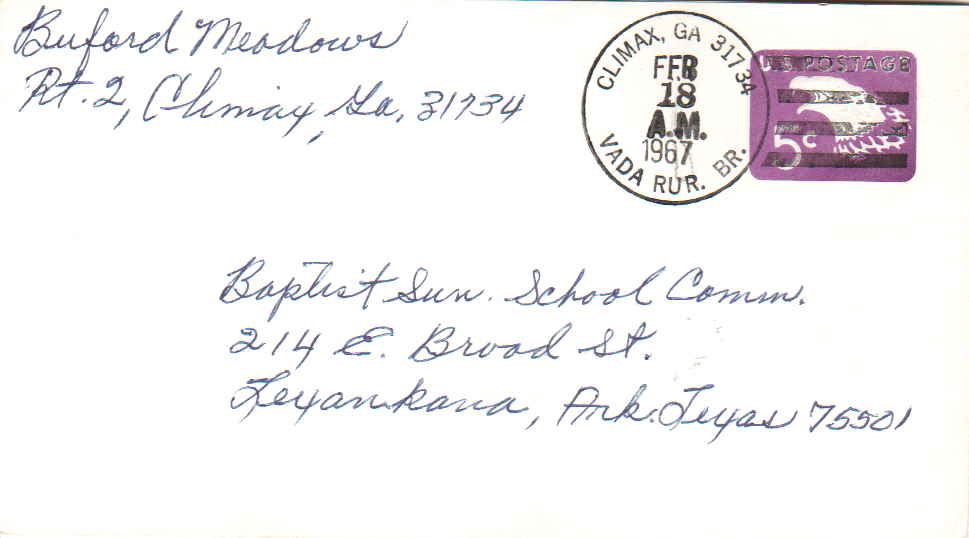 Buford Meadows
Rt. 2, Climax, Ga, 31734
CLIMAX, GA 31734
FEB
18
A.M.
1967
VADA RUR. BR.
U.S. POSTAGE
5c
Baptist Sun. School Comm.
214 E. Broad St.
Texankana, Ark. Texas 75501